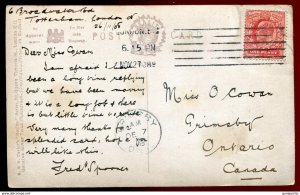 6 Broadwater Rd
Tottenham, London N.
26/11/08
POST CARD
LONDON. E
6.15 PM
NOV 27
Dear Miss Cowan
I am afraid I've
been a long time replying
but we have been very
busy & it is a long job & there
is but little time to write
Very many thanks for
splendid card. hope you
will like this.
Fred Spooner
AM
DE 7
08
Miss O Cowan
Grimsby
Ontario
Canada